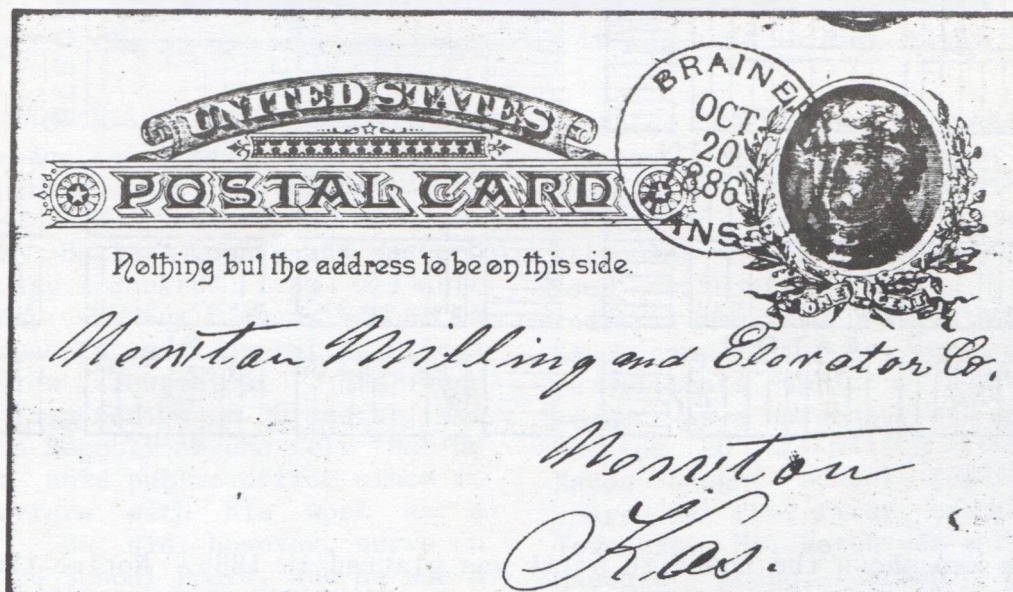 UNITED STATES
POSTAL CARD
Nothing but the address to be on this side.
BRAINER
OCT.
20
1886
KANS
ONE CENT
Newton Milling and Elevator Co.
Newton
Kas.